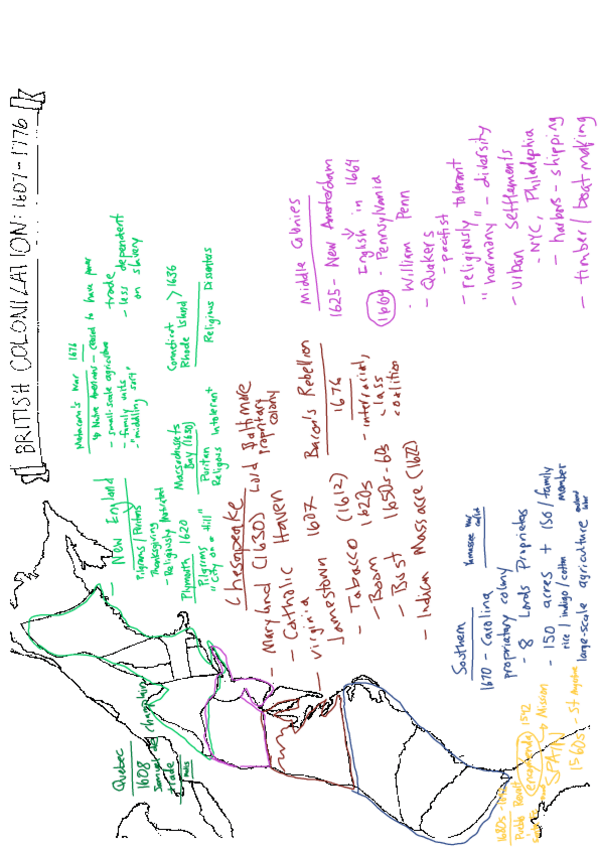 BRITISH COLONIZATION: 1607-1776
Metacom's War 1676
↳ Native Americans - ceased to have power
- small-scale agriculture
- family units
- "middling sort"
trade
- less dependent
on slavery
- New England
Pilgrims / Puritans
Thanksgiving
- Religiously motivated
Plymouth 1620
Pilgrims
"City on a Hill"
Massachusets
Bay (1630)
Puritan
Religious Intolerant
Connecticut
Rhode Island > 1636
Religious Dissenters
Quebec
1608
Samuel de Champlain
trade
Chesapeake
- Maryland (1630) Lord Baltimore
proprietary
colony
- Catholic Haven
- Virginia 1607
Jamestown
- Tobacco (1612)
- Boom 1620s
- Bust 1650s-60s
- Indian Massacre (1622)
Bacon's Rebellion
1676
- interracial,
class
coalition
Middle Colonies
1625 - New Amsterdam
↓
English in 1664
- Pennsylvania
· William Penn
- Quakers
- pacifist
- religiously tolerant
"harmony" - diversity
- urban settlements
- NYC, Philadelphia
- harbors - shipping
- timber / boat making
Southern
Yamassee War
1670 - Carolina
proprietary colony
- 8 Lords Proprietos
- 150 acres + 150/family
member
rice / indigo / cotton
large-scale agriculture
Pueblo Revolt
encomienda 1512
SPAIN
→ Mission
1560s - St Agustine